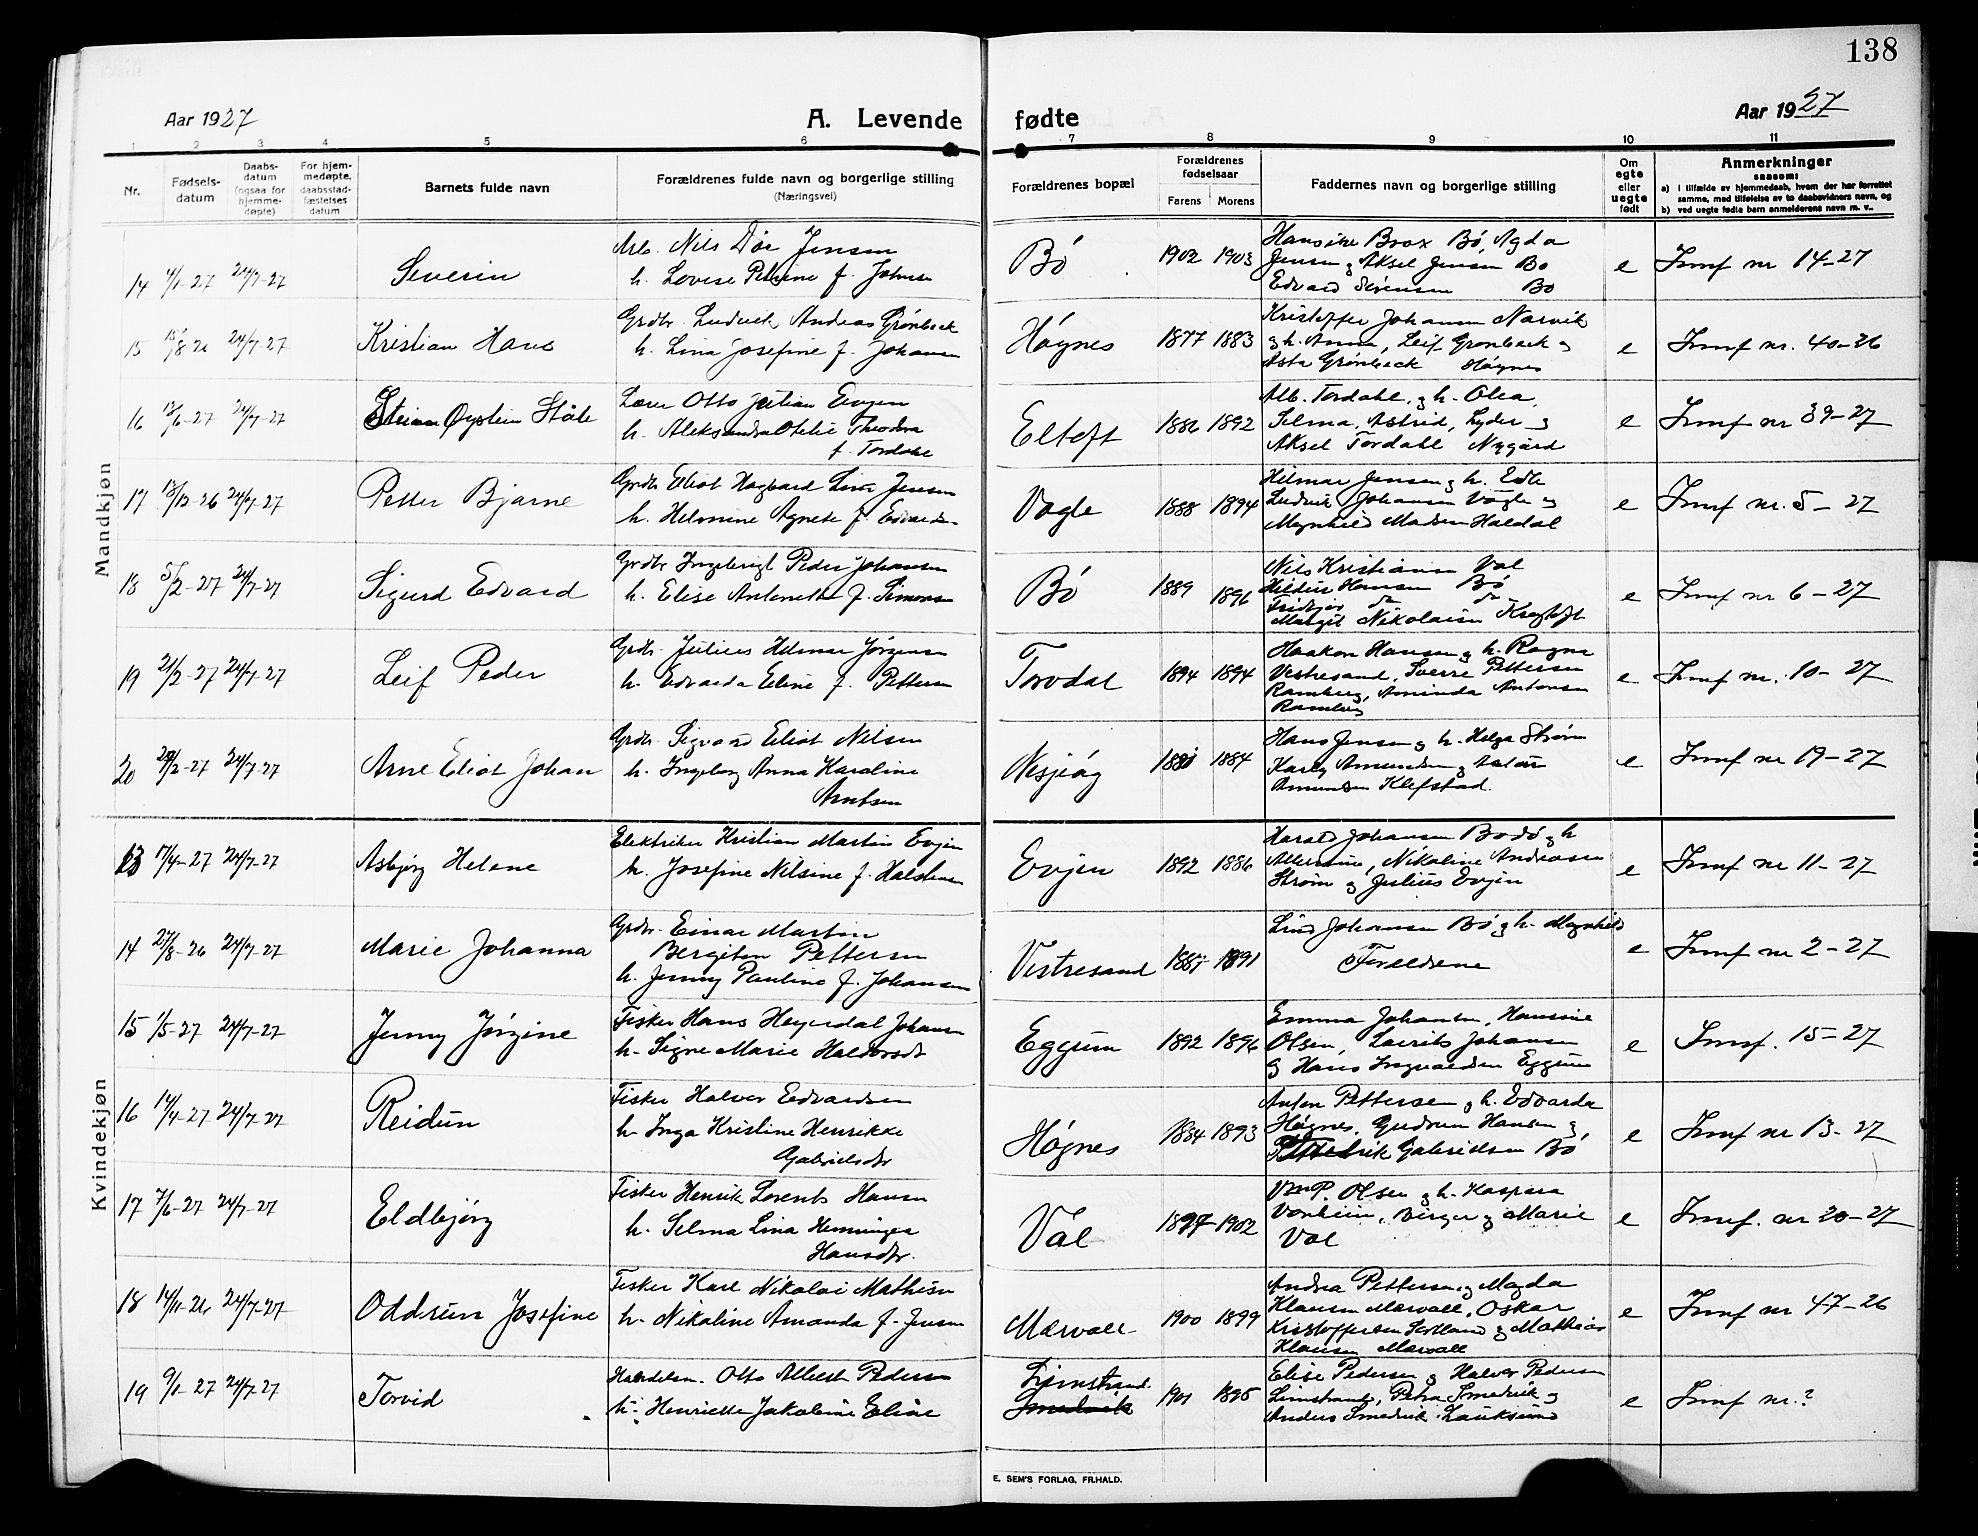 138
Aar 1927
A. Levende fødte
Aar 1927
1 2 3 4 5 6 7 8 9 10 11
Nr.
Fødsels-
datum
Daabs-
datum
(ogsaa for
hjemme-
døpte)
For hjem-
medøpte,
daabsstad-
fæstelses
datum
Barnets fulde navn
Forældrenes fulde navn og borgerlige stilling
(Næringsvei)
Forældrenes bopæl
Forældrenes
fødselsaar
Farens Morens
Faddernes navn og borgerlige stilling
Om
egte
eller
uegte
født
Anmerkninger
saasom:
a) i tilfælde av hjemmedaab, hvem der har forrettet
samme, med tilføielse av to daabsvidners navn, og
b) ved uegte fødte barn anmelderens navn m. v..
Mandkjøn
14 4/1-27 24/7-27 Severin
Arb. Nils Dør Jensen
h. Lovise Petrine f. Johnsen
Bö 1902 1903
Hansine Brox Bö, Agda
Jensen og Aksel Jensen Bö
Edvard Sörensen Bö
e Innf nr 14-27
15 15/8-26 24/7-27 Kristian Hans
Grdbr. Ludvik Andreas Grönbeck
h. Lina Josefine f. Johansen
Høgnes 1877 1883
Kristoffer Johansen Narvik
og h. Anna, Leif Grønbeck og
Asta Grönbeck Høgnes
e Innf nr. 40-26
16 12/6-27 24/7-27 Steinar Øystein Ståle
Lærer Otto Julian Evjen
h. Aleksandra Otelie Theodora
f. Tordahl
Eltoft 1886 1892
Alb. Tordahl, og h. Olea,
Selma, Astrid, Lyder og
Aksel Tordahl Nygård
e Innf nr 39-27
17 13/12-26 24/7-27 Petter Bjarne
Grdbr Eliot Hagbard Lind Jensen
h. Helmine Agnete f. Edvardsen
Vagle 1888 1894
Hilmar Jensen og h. Edle
Ludvik Johansen Vagle og
Magnhild Madsen Haldal
e Innf nr. 5-27
18 5/2-27 24/7-27 Sigurd Edvard
Grdbr Ingebrigt Peder Johansen
h. Elise Antonette f. Simonsen
Bö 1889 1896
Nils Kristiansen Val
Hansen Bö
do do
Margit Nikolaisen
e Innf nr 6-27
19 21/2-27 24/7-27 Leif Peder
Grdbr. Julius Helmer Jørgensen
h. Edvarda Eline f. Pettersen
Torvdal 1894 1894
Haakon Hansen og h. Ragna
Vestresand, Sverre Pettersen
Ramberg, Aminda Antonsen
Ramberg
e Innf nr. 10-27
20 24/7-27 Arne Eliot Johan
Grdbr. Sigvard Eliot Nilsen
h. Ingeborg Anna Karoline
Arntsen
1884
Hans Jensen og h. Helga Strøm
Karly Amundsen og
Amundsen Klefstad.
e Innf nr 19-27
Kvindekjøn
13 17/4-27 24/7-27 Asbjørg Helene
Elektriker Kristian Martin Evjen
h. Josefine Nilsine f. Halstensen
Evjen 1892 1886
Harald Johansen Bodö og h
Albertine, Nikoline Andreassen
Strøm og Julius Evjen
e Innf nr 11-27
14 27/8-26 24/7-27 Marie Johanna
Grdbr. Einar Martin
Bergiton Pettersen
h. Jenny Pauline f. Johansen
Vestresand 1887 1891
Lind Johansen Bö og h. Magnhild
Forældrene
e Innf nr 2-27
15 1/5-27 24/7-27 Jenny Jörgine
Fisker Hans Heyerdal Johansen
h. Signe Marie Haldorsdtr
Eggum 1892 1896
Emma Johansen, Hansine
Olsen, Laurits Johansen
og Hans Ingvaldsen Eggum
e Innf. 15-27
16 14/4-27 24/7-27 Reidun
Fisker Halvor Edvardsen
h. Inga Kristine Henrikke
Gabrielsdtr
Høgnes 1884 1893
Anton Pettersen og h. Edvarda
Høgnes, Gudrun Hansen og
Fredrik Gabrielsen Bö
e Innf nr 13-27
17 7/6-27 24/7-27 Eldbjörg
Fisker Henrik Lorents Hansen
h. Selma Lina Henninga
Hansdtr.
Val 1897 1902
P. Olsen og h. Kaspara
Vonheim, Birger og Marie
Val
e Innf. nr 20-27
18 14/11-26 24/7-27 Oddrun Josefine
Fisker Karl Nikolai Mathisen
h. Nikoline Amanda f. Jensen
Mærvoll 1900 1899
Andrea Pettersen og Magda
Klausen Mærvoll, Oskar
Kristoffersen og Mathias
Klausen Mærvoll
e Innf nr 47-26
19 9/1-27 24/7-27 Torvid
Handelsm. Otto Albert Pedersen
h. Henriette Jakobine Eline
Limstrand.
Smedvik
1901 1895
Elise Pedersen og Halvor Pedersen
Limstrand, Petra Smedvik og
Anders Smedvik Lauksund
e Innf nr.?
E. SEM'S FORLAG, FR.HALD.